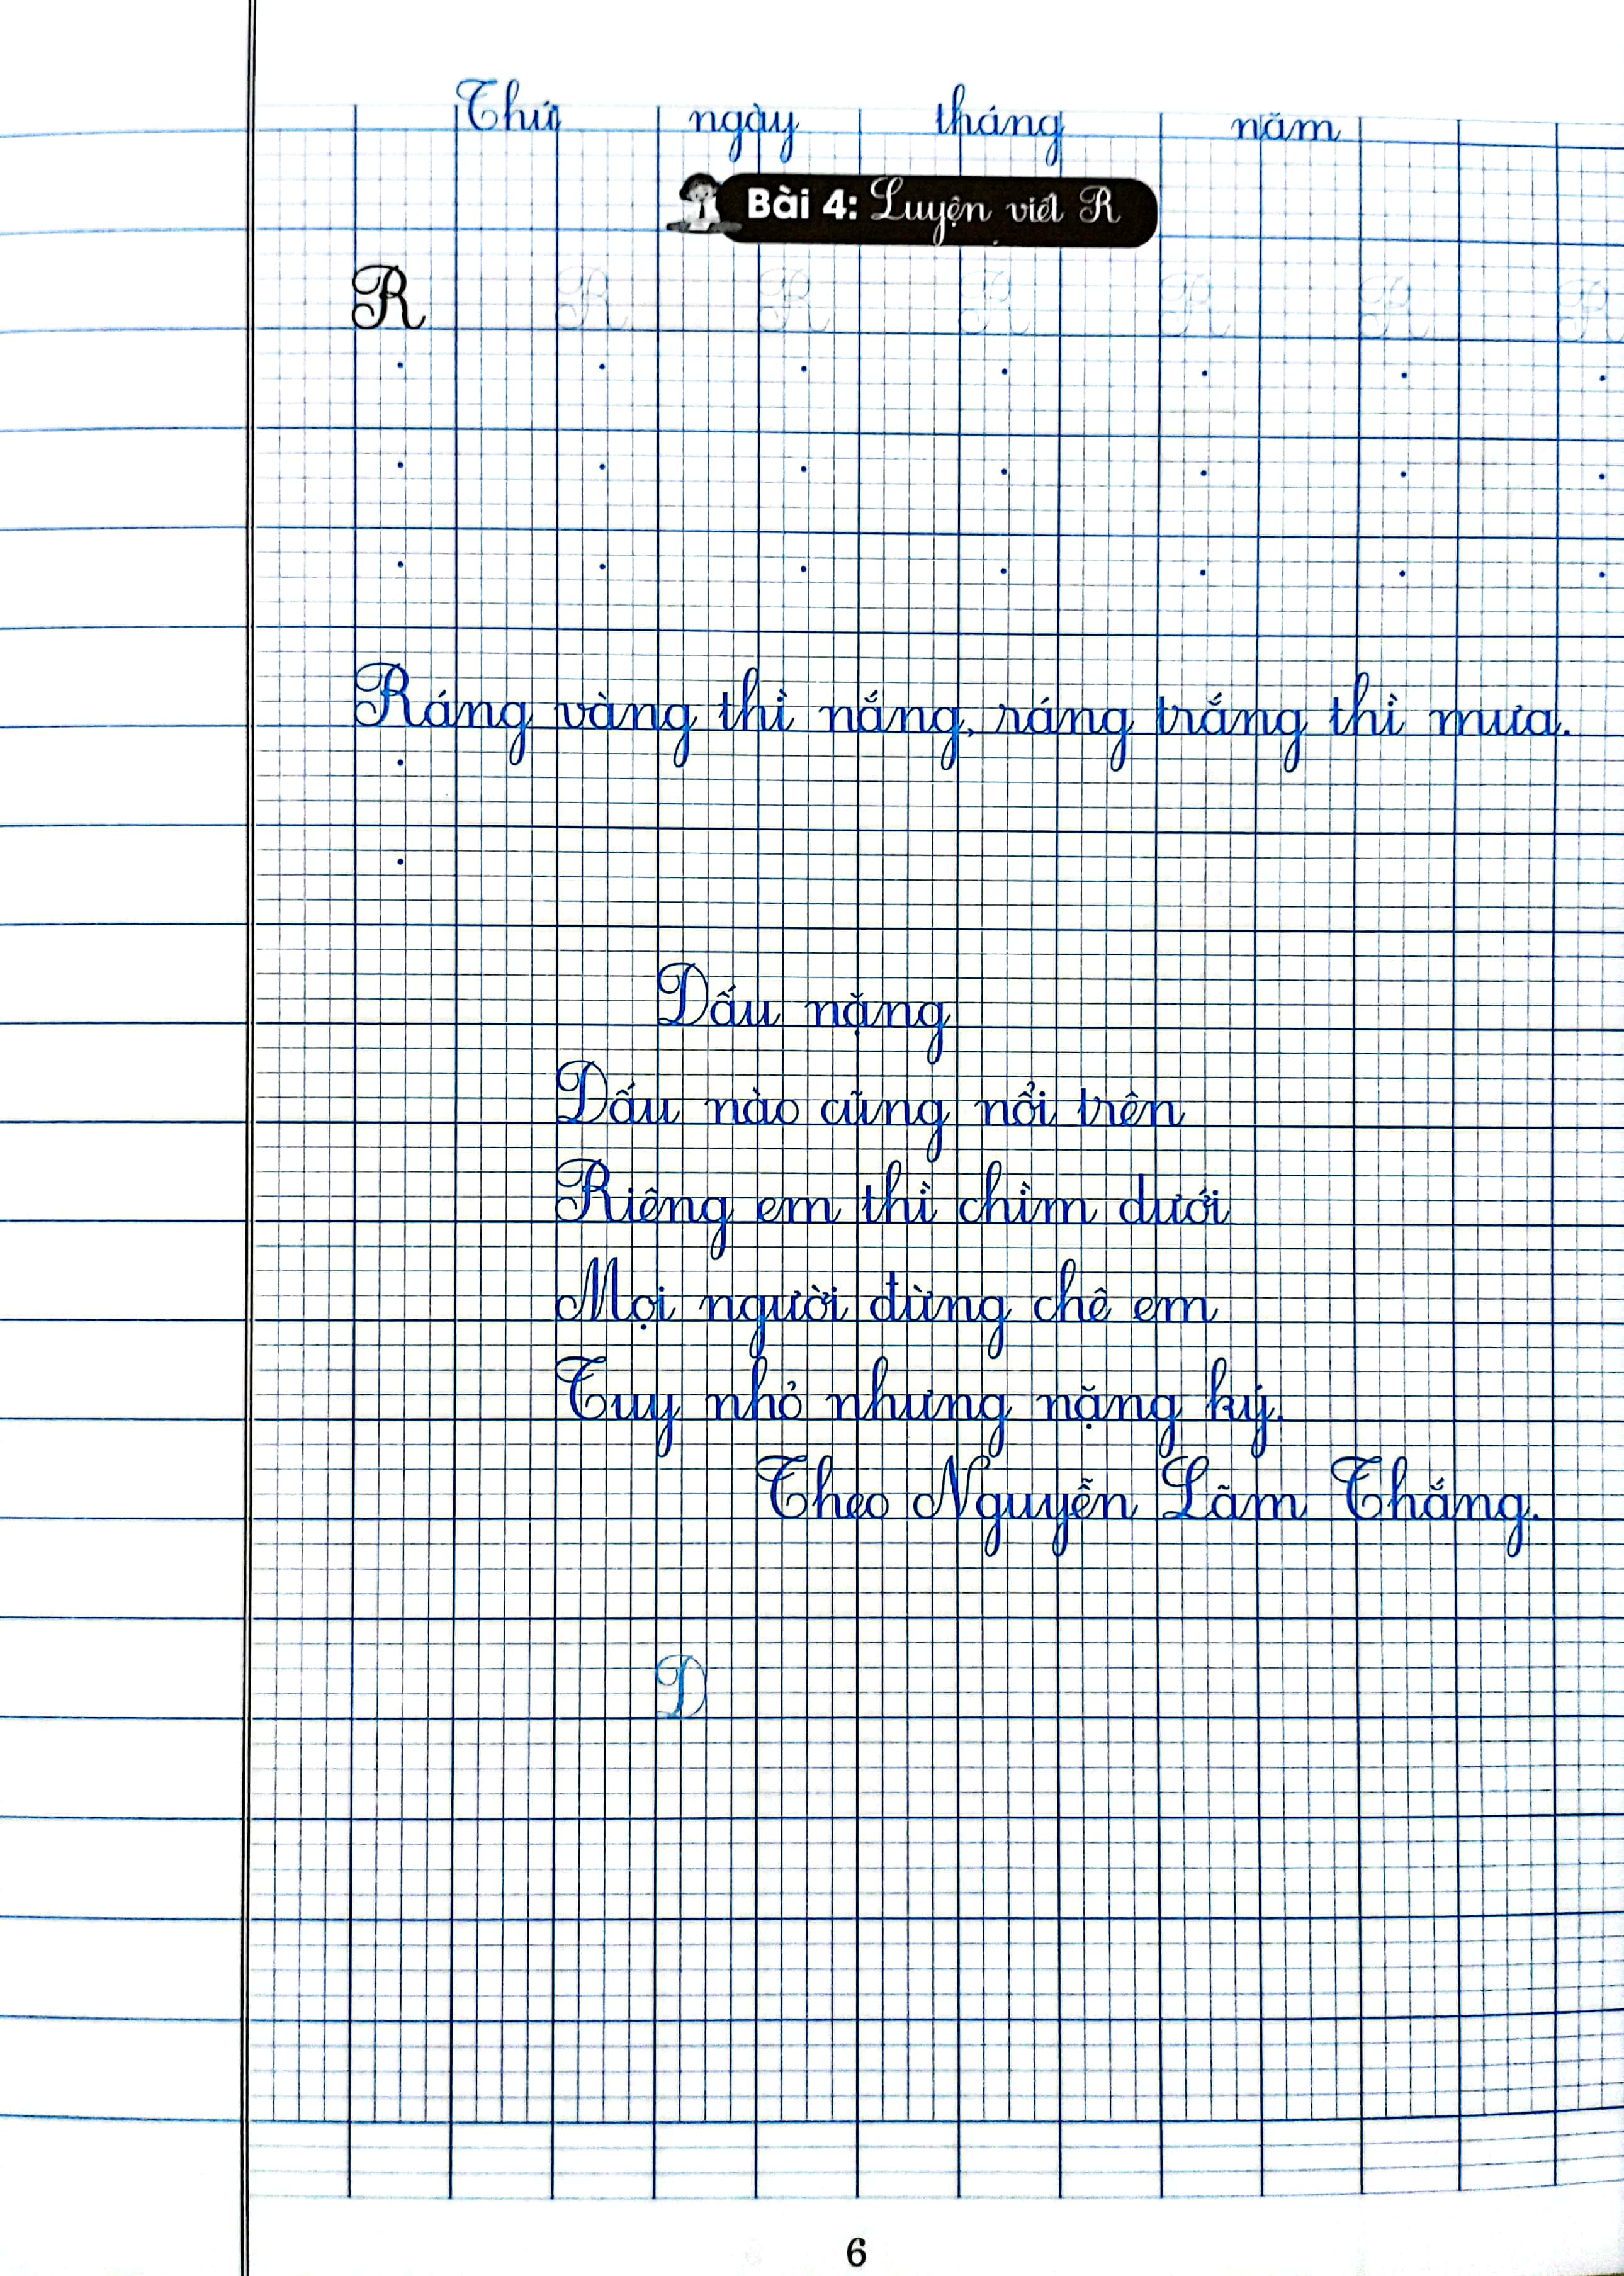 Thứ ngày tháng năm
Bài 4: Luyện viết R
R R R R R R R
Ráng vàng thì nắng, ráng trắng thì mưa.
Dấu nặng
Dấu nào cũng nổi trên
Riêng em thì chìm dưới
Mọi người đừng chê em
Tuy nhỏ nhưng nặng ký.
Theo Nguyễn Lãm Thắng.
D
6